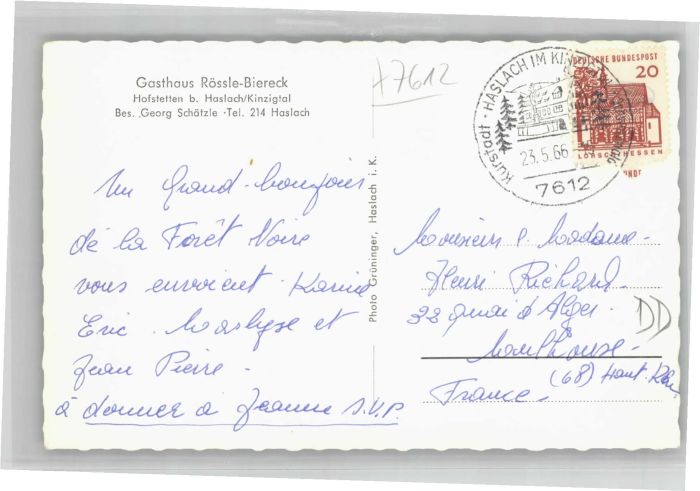 Gasthaus Rössle-Biereck
Hofstetten b. Haslach/Kinzigtal
Bes. Georg Schätzle · Tel. 214 Haslach
Un Grand bonjour
de la Forêt Noire
vous envoient Karine
Eric et
Jean Pierre.
à donner à Jeanne S.V.P.
Photo Grüninger, Haslach i. K.
+7612
Kurstadt · HASLACH IM KINZIGTAL
23.5.66
7612
DEUTSCHE BUNDESPOST
20
LORSCH/HESSEN
Monsieur e Madame
Henri Richard.
quai d'Alger.
DD
Mulhouse.
(68) Haut-Rhin
France.